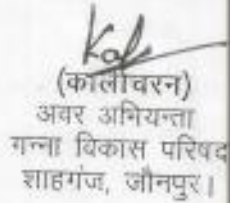 (कालीचरन)
अवर अभियन्ता
गन्ना विकास परिषद
शाहगंज, जौनपुर।